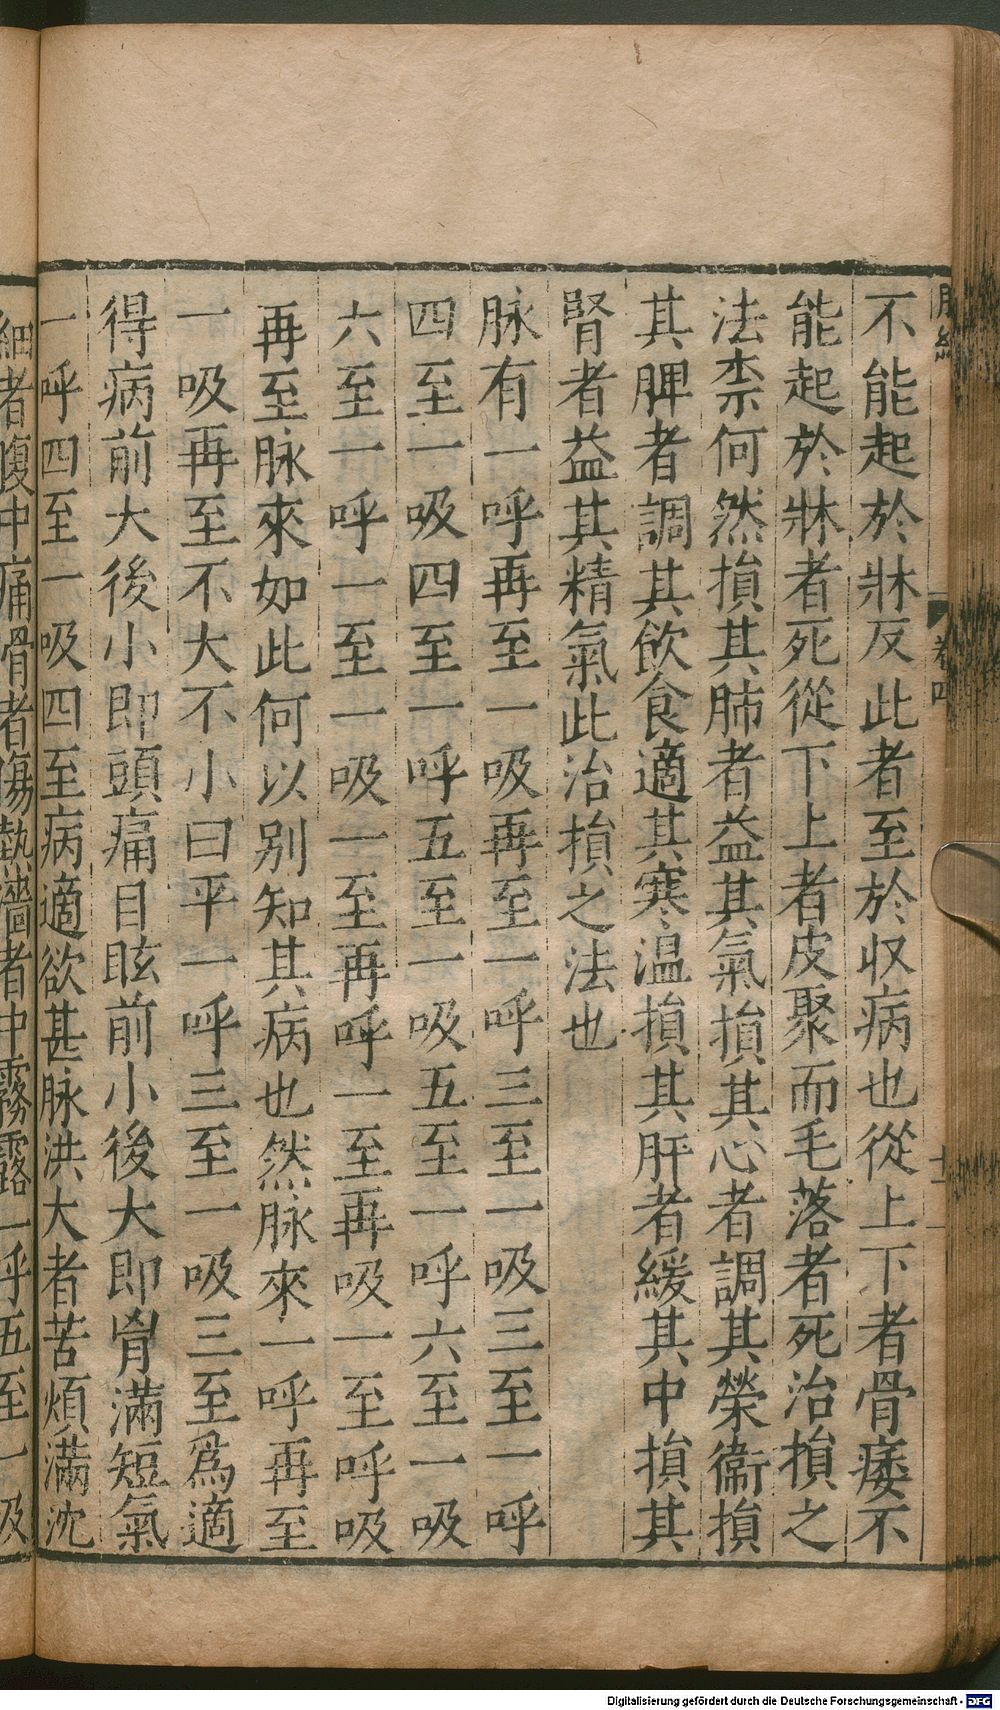 脉經　卷四　十一
不能起於牀反此者至於収病也從上下者骨痿不
能起於牀者死從下上者皮聚而毛落者死治損之
法柰何然損其肺者益其氣損其心者調其榮衞損
其脾者調其飲食適其寒温損其肝者緩其中損其
腎者益其精氣此治損之法也
脉有一呼再至一吸再至一呼三至一吸三至一呼
四至一吸四至一呼五至一吸五至一呼六至一吸
六至一呼一至一吸一至再呼一至再吸一至呼吸
再至脉來如此何以别知其病也然脉來一呼再至
一吸再至不大不小曰平一呼三至一吸三至爲適
得病前大後小即頭痛目眩前小後大即胷滿短氣
一呼四至一吸四至病適欲甚脉洪大者苦煩滿沈
細者腹中痛骨者傷熱濇者中霧露一呼五至一吸
Digitalisierung gefördert durch die Deutsche Forschungsgemeinschaft - DFG